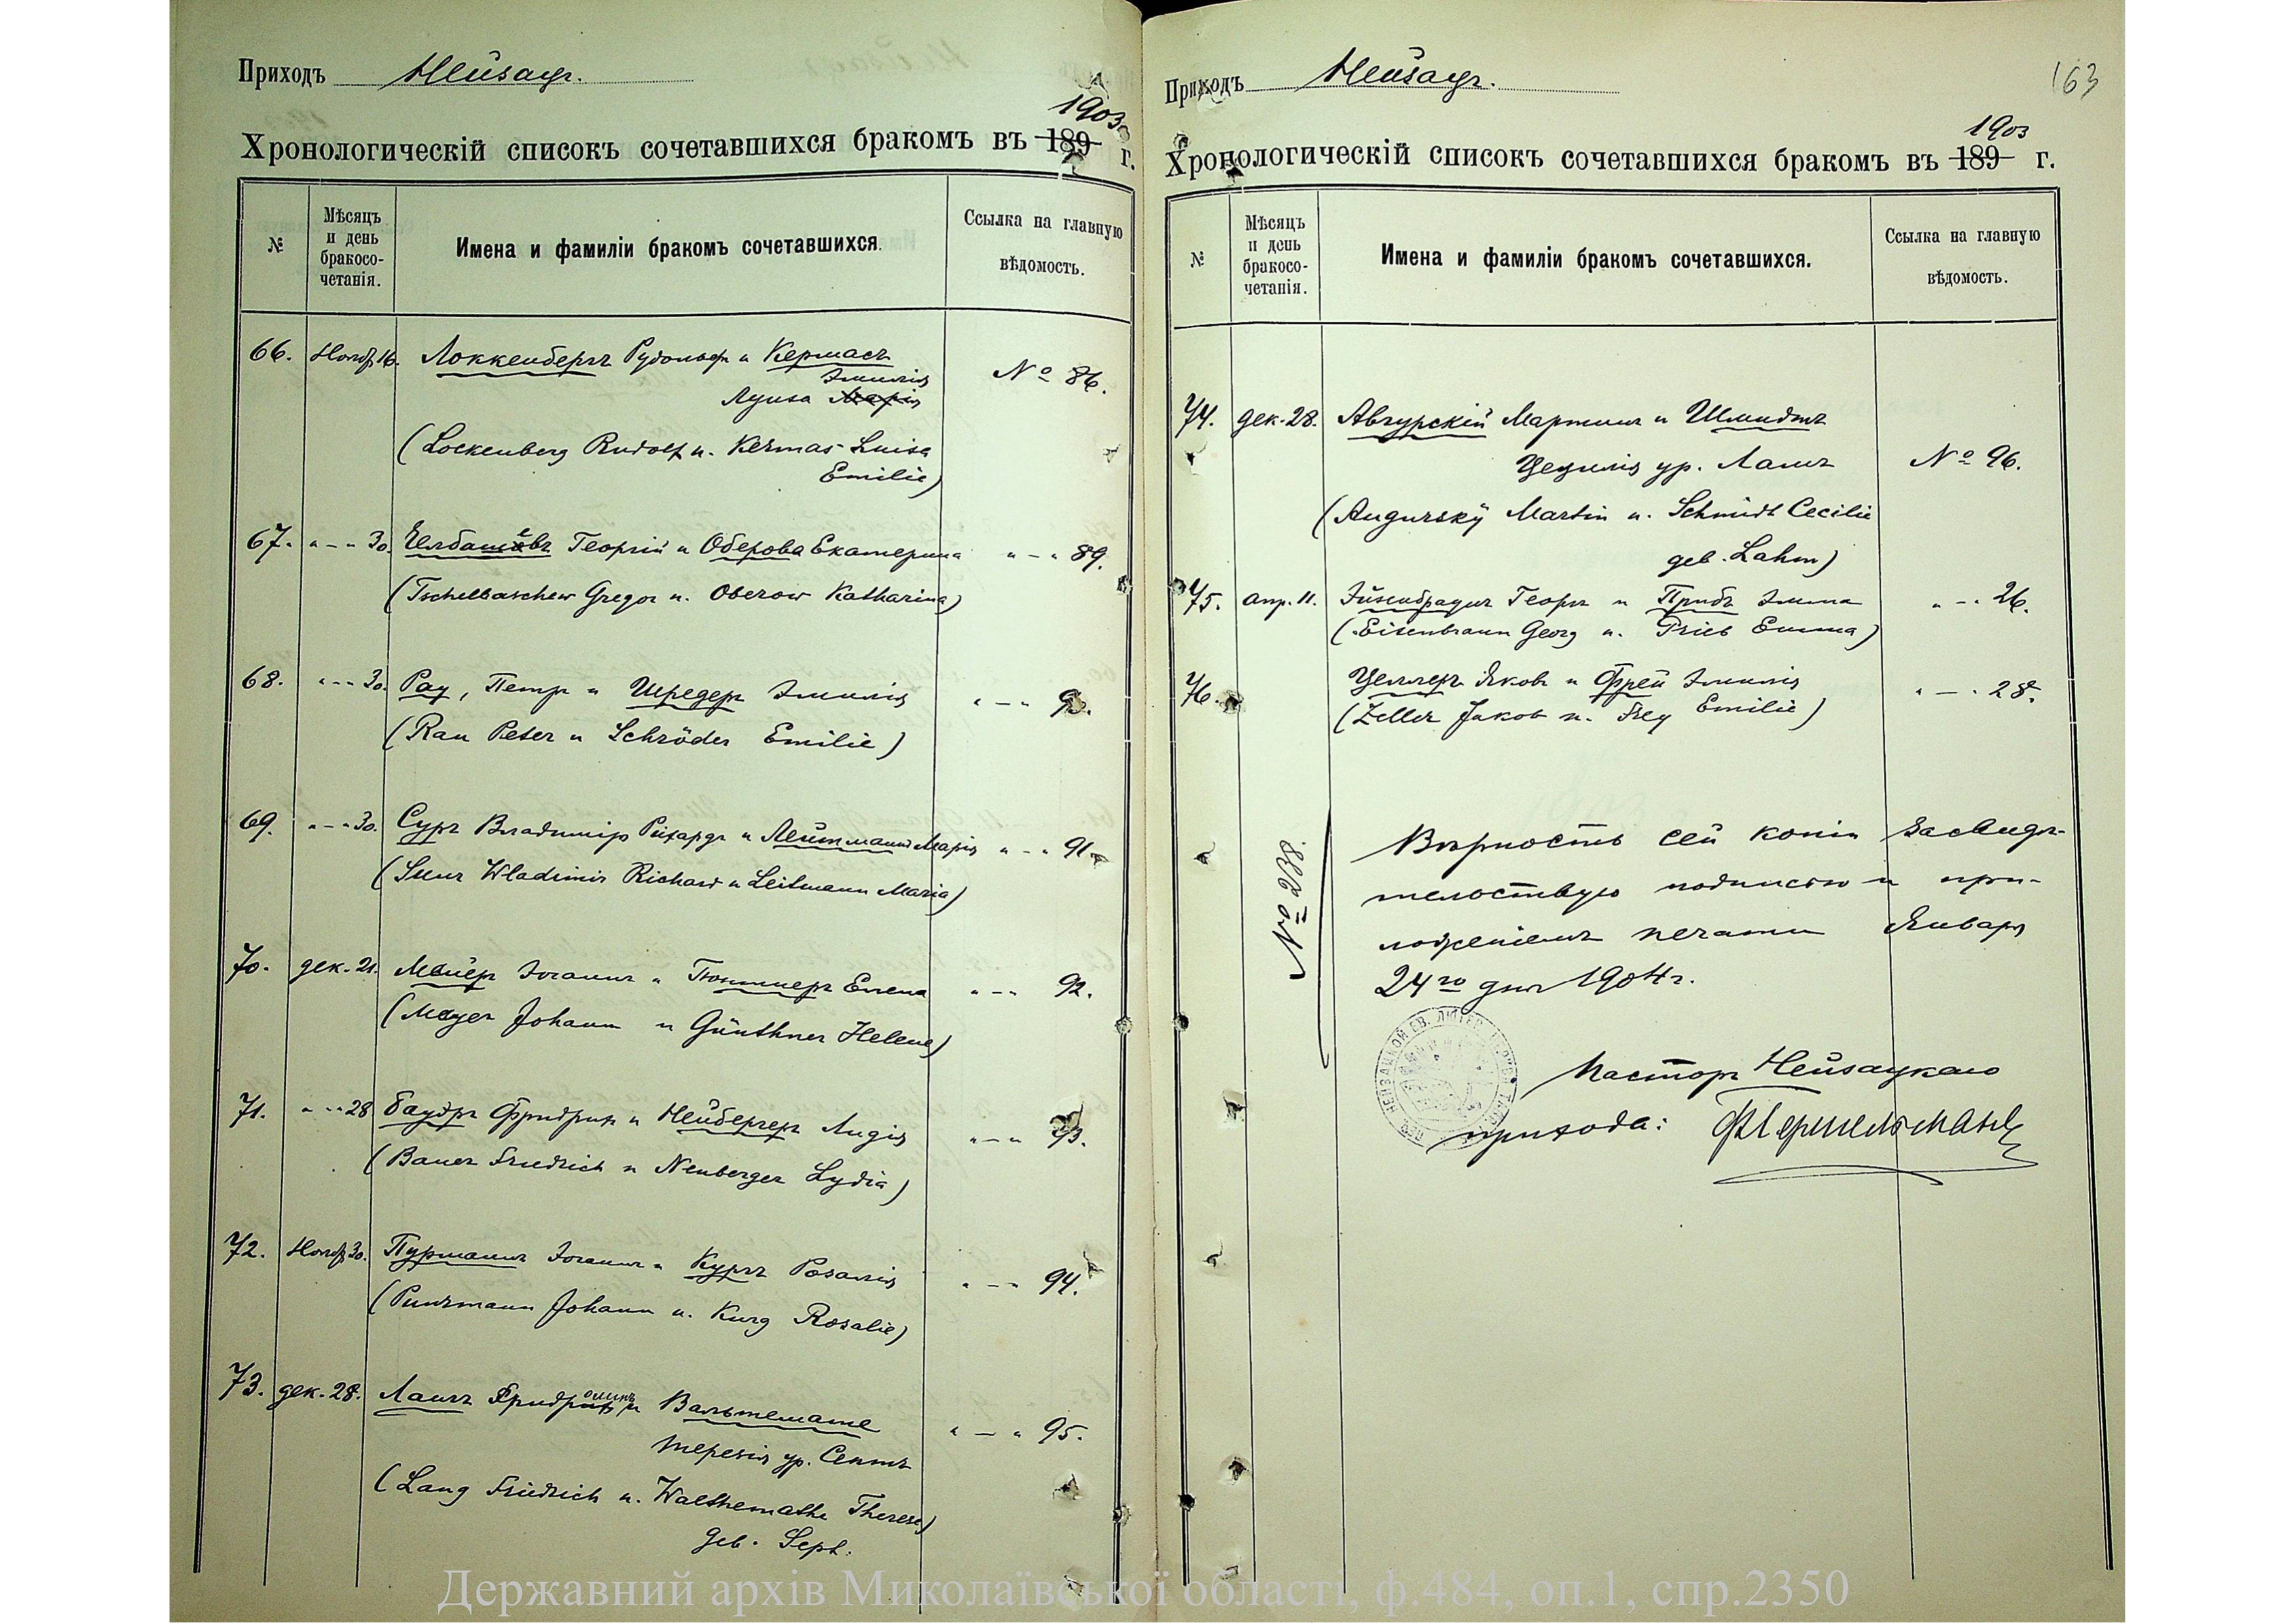 Приходъ Нейзацъ.
1903
Хронологическій списокъ сочетавшихся бракомъ въ 189 г.
№
Мѣсяцъ и день бракосо-четанія.
Имена и фамиліи бракомъ сочетавшихся.
Ссылка на главную вѣдомость.
66. Ноябр. 16. Локкенбергъ Рудольфъ и Кермасъ № 86.
Эмилія
Луиза Марія
(Lockenberg Rudolf u. Kermas Luisa
Emilie)
67. " — " 30. Челбашевъ Георгій и Оберова Екатерина " — " 89.
(Tschelbaschew Gregor u. Oberow Katharina)
68. " — " 30. Рау, Петръ и Шредеръ Эмилія " — " 90.
(Rau Peter u Schröder Emilie)
69. " — " 30. Суръ Владиміръ Рихардъ и Лейтманъ Марія " — " 91.
(Suur Wladimir Richard u Leitmann Maria)
70. дек. 21. Мейеръ Іоганнъ и Гюнтнеръ Елена " — " 92.
(Meyer Johann u Günthner Helene)
71. " — " 28 Бауэръ Фридрихъ и Нейбергеръ Лидія " — " 93.
(Bauer Friedrich u Neuberger Lydia)
72. Ноябр. 30. Пурманнъ Іоганнъ и Кургъ Розалія " — " 94.
(Puurmann Johann u. Kurg Rosalie)
73. дек. 28. Лангъ Фридрихъ и Вальтемате " — " 95.
Терезія ур. Септъ
(Lang Friedrich u. Walthemathe Therese)
geb. Sept.
Приходъ Нейзацъ.
163
1903
Хронологическій списокъ сочетавшихся бракомъ въ 189 г.
№
Мѣсяцъ и день бракосо-четанія.
Имена и фамиліи бракомъ сочетавшихся.
Ссылка на главную вѣдомость.
74. дек. 28. Авгурскій Мартинъ и Шмидтъ
Цецилія ур. Ламъ № 96.
(Augursky Martin u. Schmidt Cecilie
geb. Lahm)
75. апр. 11. Эйзенбраунъ Георгъ и Прибъ Эмма " — " 26.
(Eisenbraun Georg u. Prieb Emma)
76. Целлеръ Яковъ и Фрей Эмилія " — " 28.
(Zeller Jakob u. Frey Emilie)
№ 238.
Вѣрность сей копіи засвидѣ-
тельствую подписью и при-
ложеніемъ печати Января
24го дня 1904 г.
Пасторъ Нейзацкаго
прихода:
Державний архів Миколаївської області, ф.484, оп.1, спр.2350